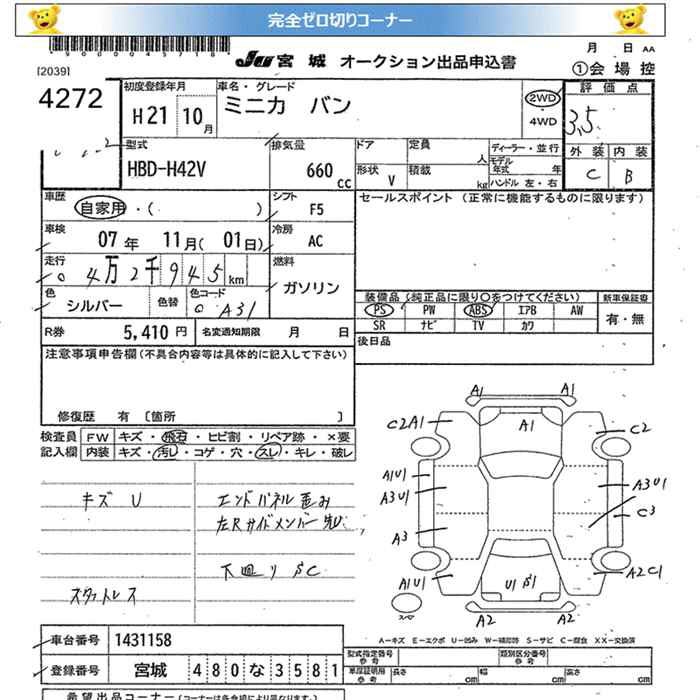 完全ゼロ切りコーナー
*9000045718*
[2039]
JU 宮城 オークション出品申込書
月 日 AA
①会場控
4272
初度登録年月
H21 10月
車名・グレード
ミニカ バン
2WD
4WD
評価点
3.5
外装 内装
C B
型式
HBD-H42V
排気量
660 cc
ドア
形状 V
定員 人
積載 kg
ディーラー・並行
モデル年式 年
ハンドル 左・右
車歴
自家用・( )
シフト
F5
セールスポイント (正常に機能するものに限ります)
車検
07年 11月(01日)
冷房
AC
走行
0 4万2千945 km
燃料
ガソリン
色
シルバー
色替
色コード
A31
装備品(純正品に限り○をつけてください)
新車保証書
PS PW ABS エアB AW
有・無
SR ナビ TV カワ
R券 5,410円
名変通知期限 月 日
後日品
注意事項申告欄(不具合内容等は具体的に記入して下さい)
修復歴 有 〔箇所 〕
検査員記入欄
FW キズ・飛石・ヒビ割・リペア跡・×要
内装 キズ・汚レ・コゲ・穴・スレ・キレ・破レ
キズ U
エンドパネル歪み
左Rサイドメンバー先U
下廻り SC
スタットレス
A1 A1
C2A1 A1 C2
A1U1
A3U1 A3U1
C3
A3
A1U1 U1 S1 A2C1
A2 A2
スペア
A－キズ E－エクボ U－凹み W－補修跡 S－サビ C－腐食 XX－交換済
車台番号 1431158
型式指定番号 参考
類別区分番号 参考
登録番号 宮城 480な3581
車庫証明用 参考
長さ cm 幅 cm 高さ cm
希望出品コーナー(コーナーは各会場により異なります。)